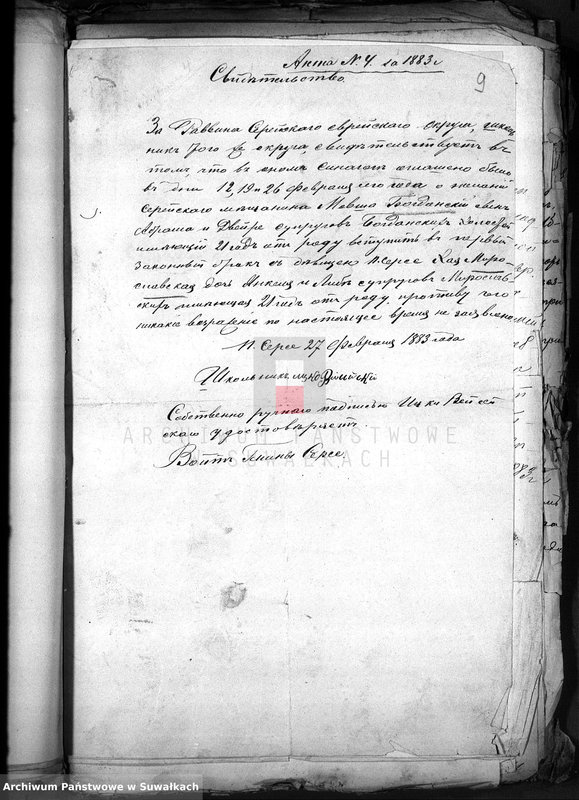 Акта N. 4. за 1883 г
9
Свидѣтельство
За Раввина Серейскаго еврейскаго округа, школь
никъ того же округа, свидѣтельствуетъ въ
томъ, что въ ономъ синагогѣ оглашено было
въ дни 12, 19 и 26 февраля сего года о желаніи
Серейскаго мѣщанина Мовша Богданскій сынъ
Абрама и Двейры супруговъ Богданскихъ холостой
имѣющій 21 годъ отъ роду вступить въ первый
законный бракъ съ дѣвицею п. Серее Хая Миро
славская дочь Янкеля и Либы супруговъ Мирослав
скихъ имѣющая 21 годъ отъ роду, противу чего
никакое возраженіе по настоящее время не заявлено
п. Серее 27 февраля 1883 года
Школьникъ
Собственно ручного подписью Ицки
удостовѣряетъ.
Войтъ гмины Серее.
ARCHIWUM PAŃSTWOWE
W SUWAŁKACH
Archiwum Państwowe w Suwałkach